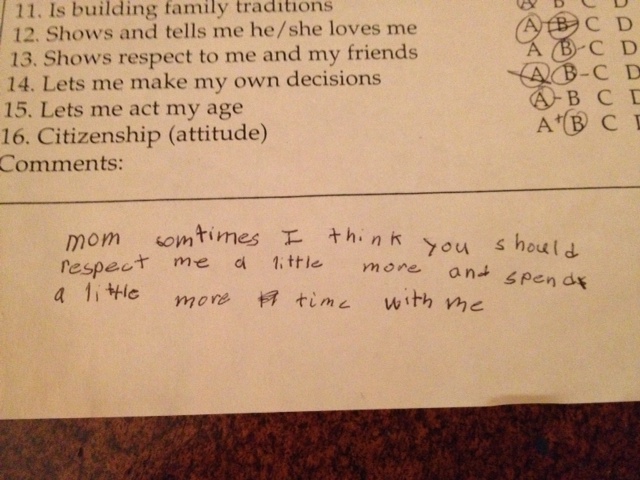 11. Is building family traditions A B C D
12. Shows and tells me he/she loves me A B C D
13. Shows respect to me and my friends A B- C D
14. Lets me make my own decisions A B-C D
15. Lets me act my age A-B C D
16. Citizenship (attitude) A+ B C
Comments:
mom somtimes I think you should
respect me a little more and spend
a little more time with me